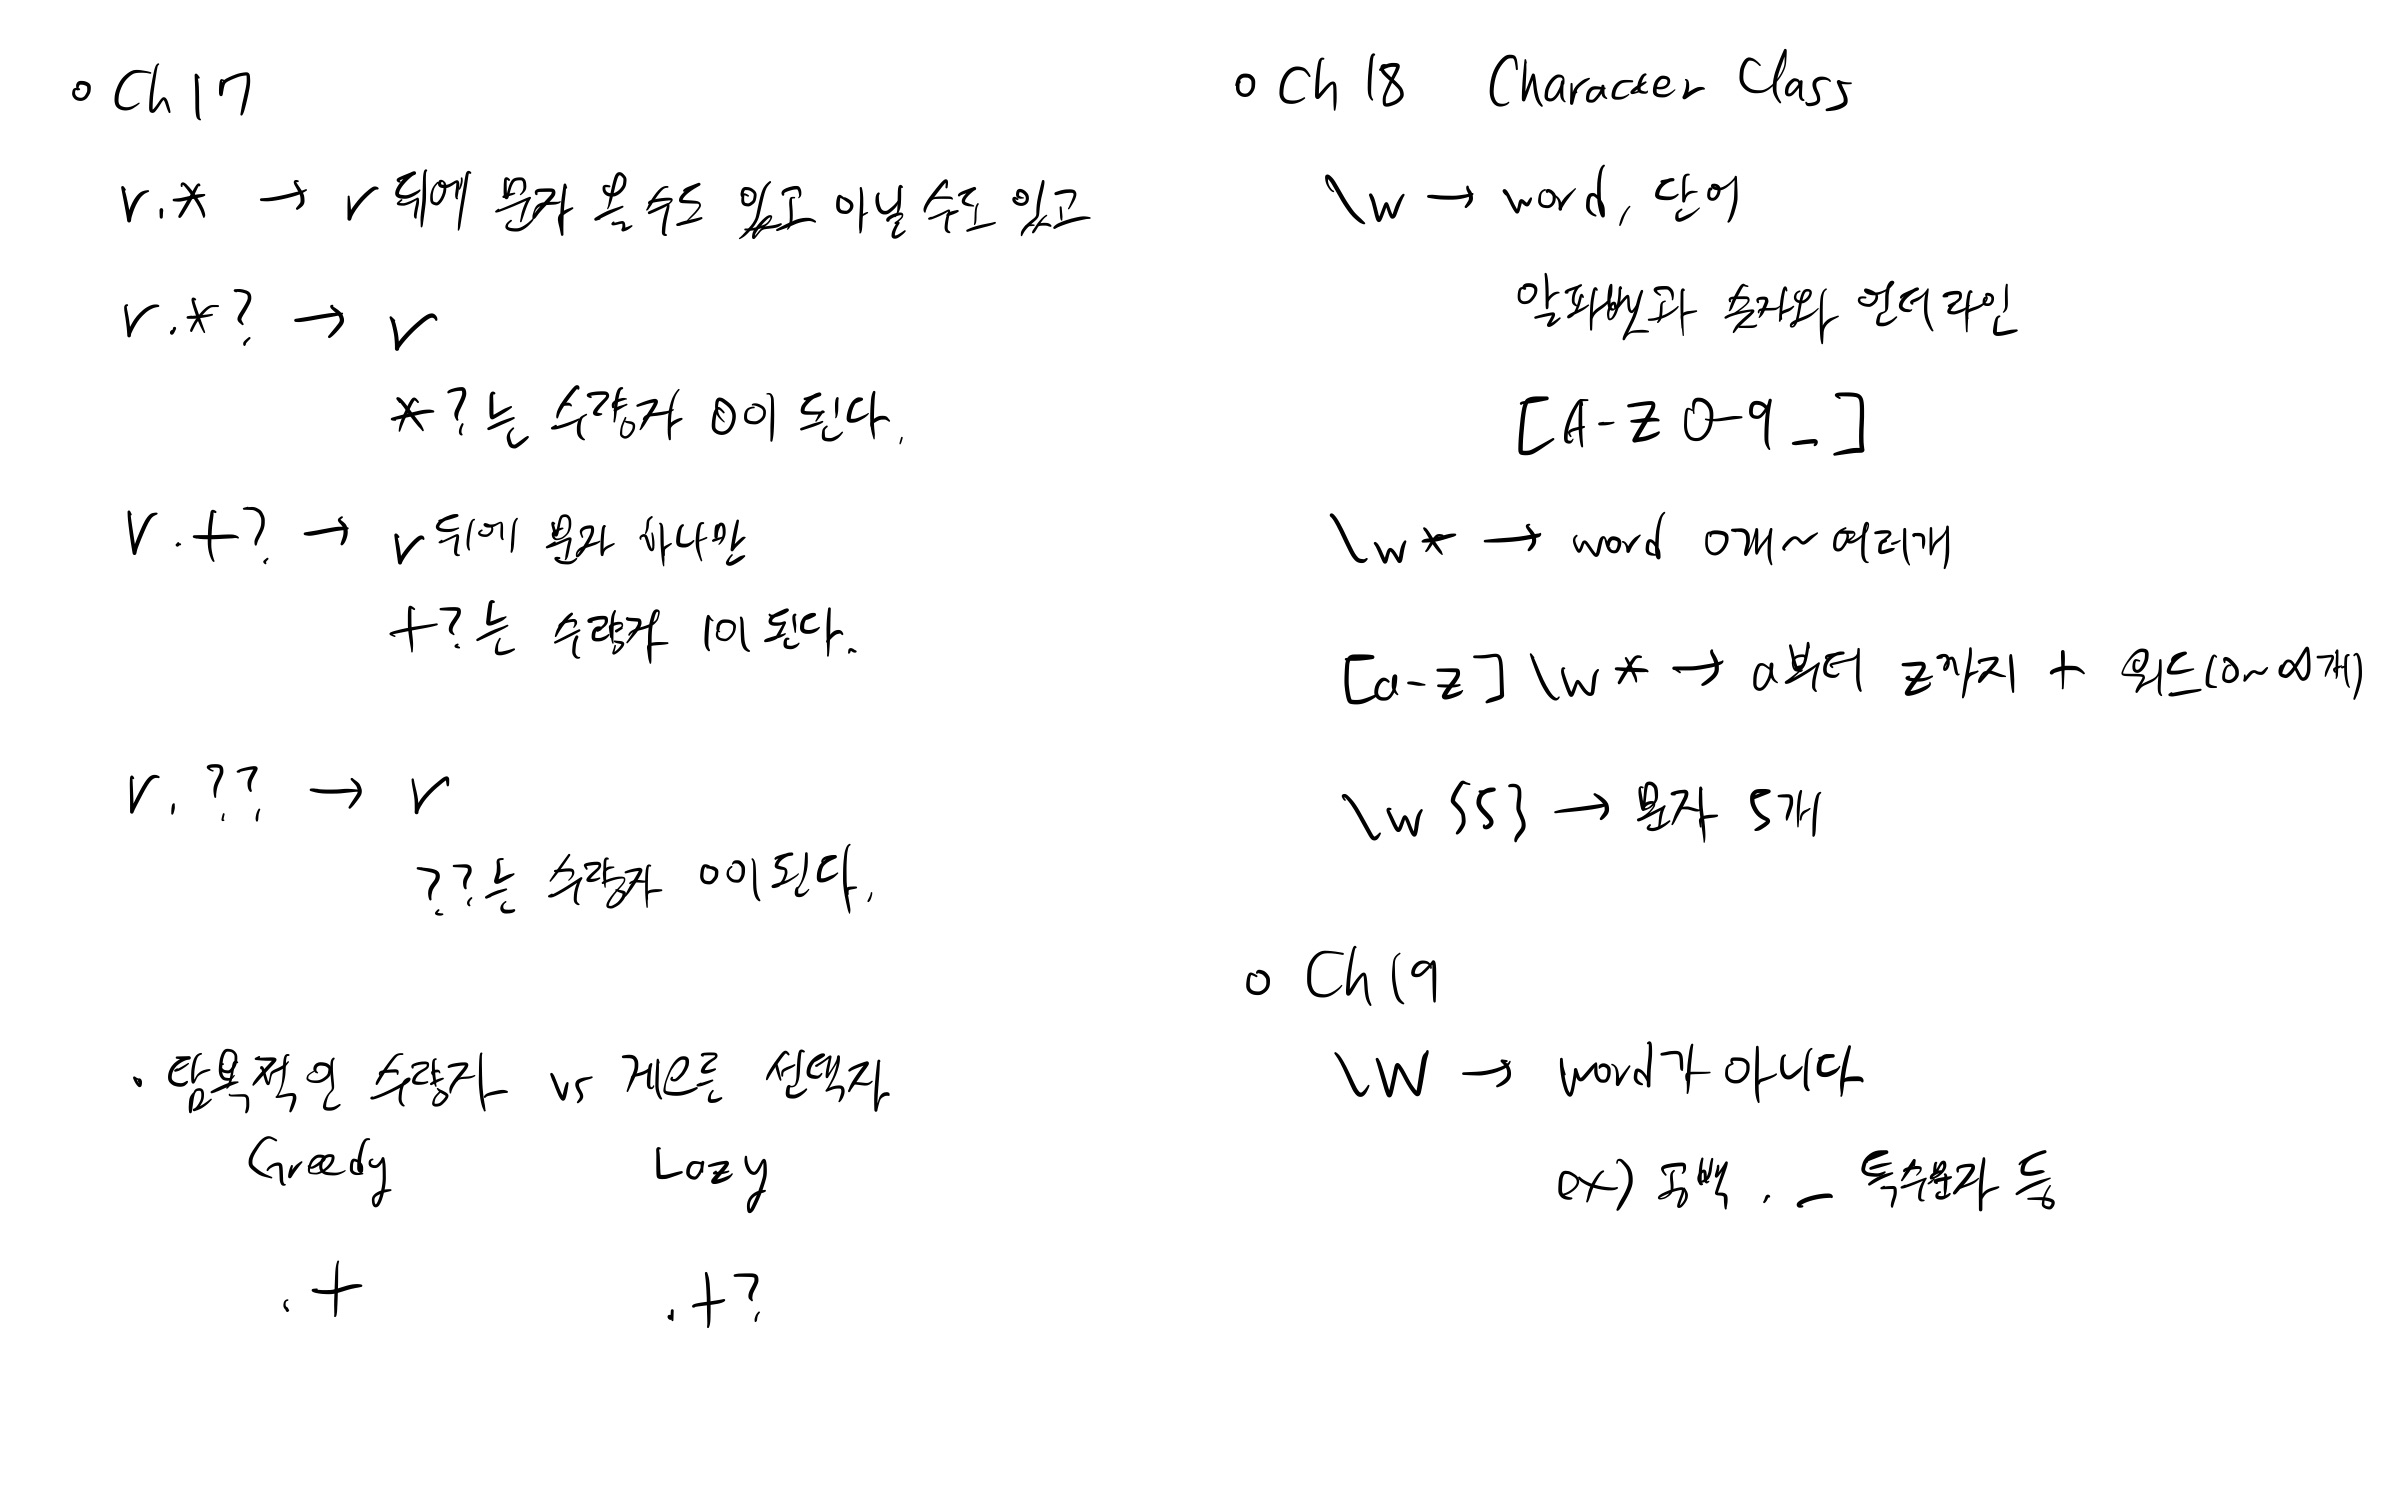 o Ch 17
r.* → r 뒤에 문자 올 수도 있고 아닐 수도 있고
r.*? → r
*?는 수량자 0이 된다.
r.+? → r 뒤에 문자 하나만
+?는 수량자 1이 된다.
r.?? → r
??는 수량자 0이 된다.
· 탐욕적인 수량자 vs 게으른 선택자
Greedy Lazy
.+ .+?
o Ch 18 Character Class
\w → word, 단어
알파벳과 숫자와 언더라인
[A-Z 0-9 _]
\w* → word 0개~여러개
[a-z]\w* → a부터 z까지 + 워드(0~∞개)
\w{5} → 문자 5개
o Ch 19
\W → word가 아니다
ex) 공백 . _ 특수문자 등